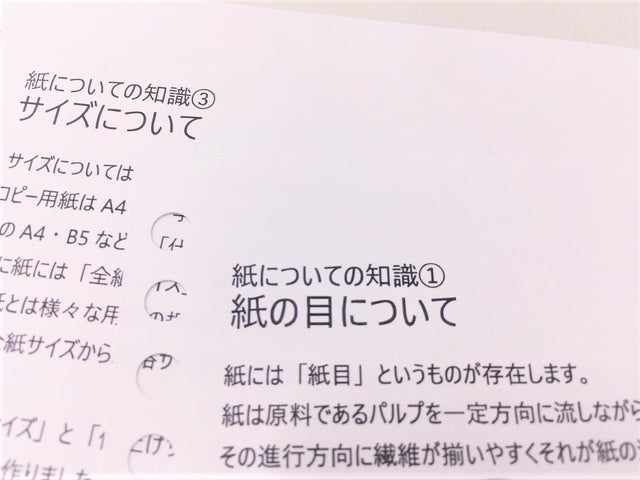 紙についての知識③
サイズについて
サイズについては
コピー用紙は A4
の A4・B5 など
に紙には「全紙
紙とは様々な用
全紙サイズから
イズ」と「
作りました
紙についての知識①
紙の目について
紙には「紙目」というものが存在します。
紙は原料であるパルプを一定方向に流しながら
その進行方向に繊維が揃いやすくそれが紙の